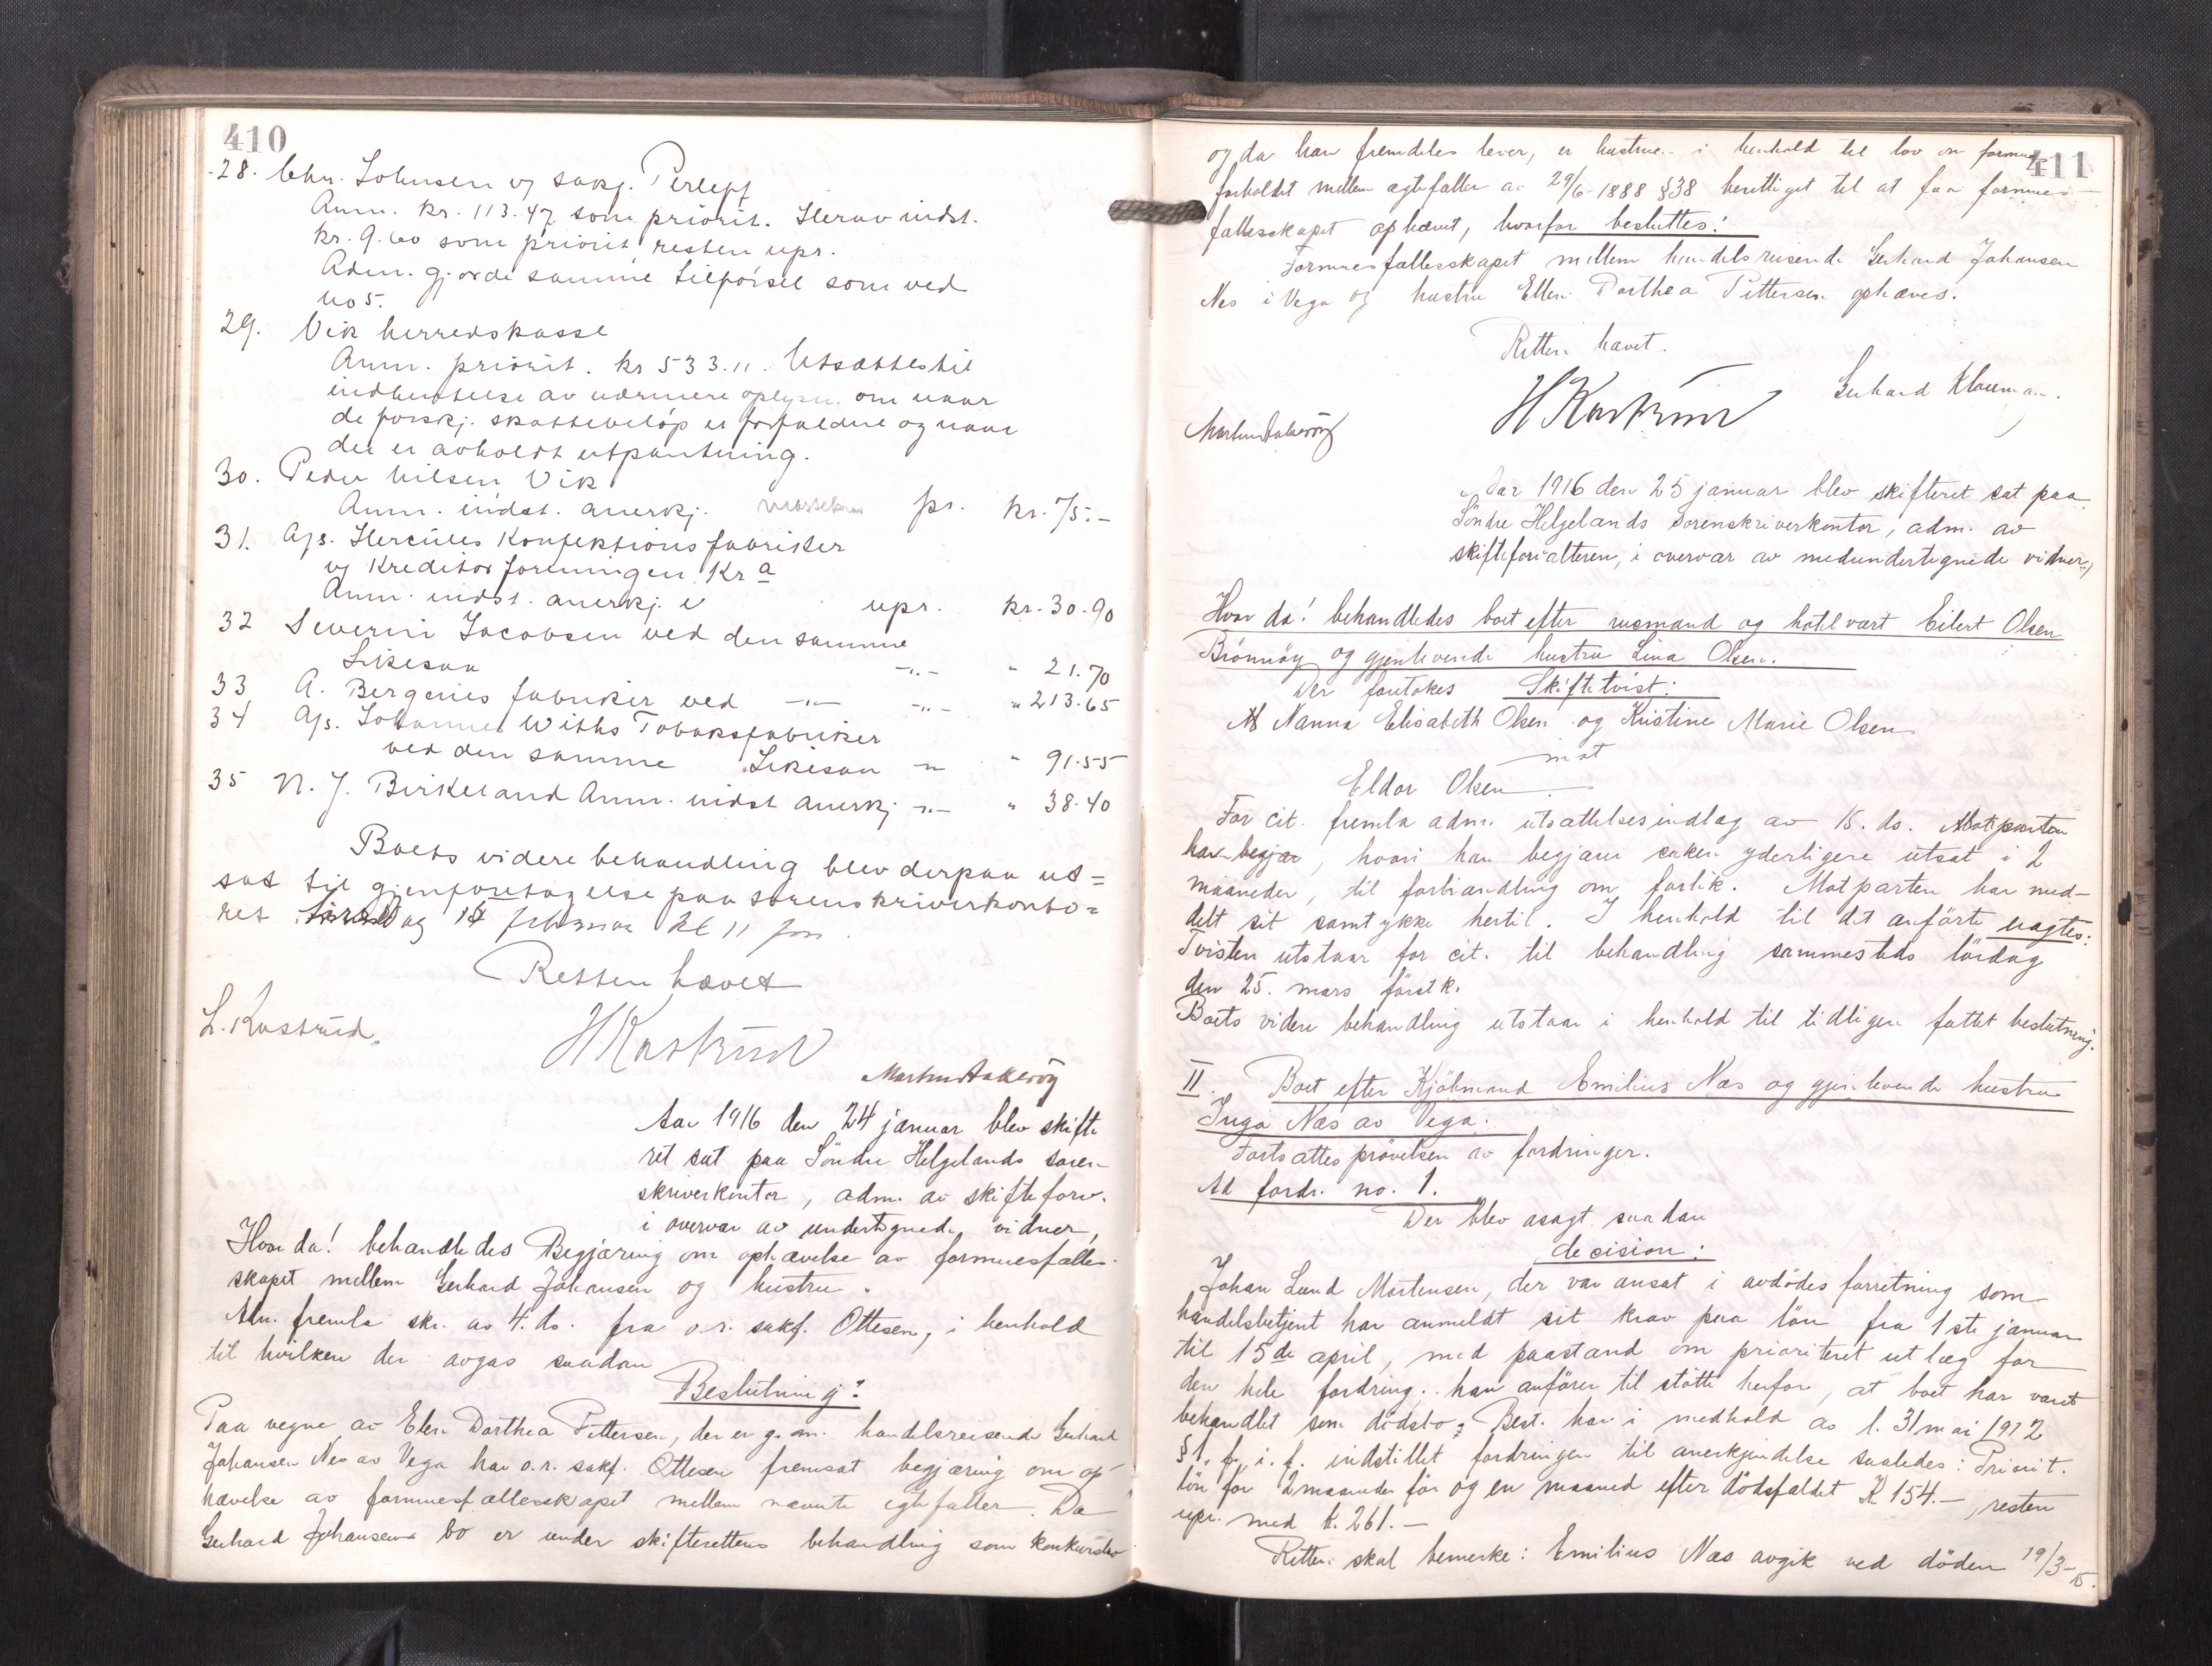 410
28. Chr. Johnsen v/ sakf. Perlepf
Anm. kr. 113.47 som priorit. Herav indst.
kr. 9.60 som priorit resten upr.
Adm. gjorde samme tilförsel som ved
no 5.
29. Vik herredskasse
Anm. priorit. kr 533.11. Utsættes til
indhentelse av nærmere oplysn. om naar
de forskj. skattebelöp er forfaldne og naar
der er avholdt utpantning.
30. Peder Nilsen Vik
Anm. indst. anerkj. pr. kr. 75.-
31. A/s. Hercules Konfektionsfabriker
v/ Kreditorforeningen Kra
Anm. indst. anerkj. upr. kr. 30.90
32 Severin Jacobsen ved den samme
Likesaa -"- " 21.70
33 A. Bergenes fabriker ved -"- -"- " 213.65
34 A/s. Johannes Withs Tobaksfabriker
ved den samme Likesaa -"- " 91.55
35 N. J. Birkeland Anm. indst anerkj -"- " 38.40
Boets videre behandling blev derpaa ut=
sat til gjenforetagelse paa sorenskriverkonto=
ret dag 15 februar kl 11 fm.
Retten hævet
L. Kastrud.
H Kastrud
Martin Aakeröy
Aar 1916 den 24 januar blev skifte
ret sat paa Söndre Helgelands soren-
skriverkontor, adm. av skifteforv.
i overvær av undertegnede vidner,
Hvor da! behandledes Begjæring om ophævelse av formuesfælles-
skapet mellem Gerhard Johansen og hustru.
Adm. fremla skr. av 4. ds. fra o.r. sakf. Ottesen, i henhold
til hvilken der avgas saadan
Beslutning:
Paa vegne av Elen Dorthea Pettersen, der er g. m. handelsreisende Gerhard
Johansen Nes av Vega har o.r. sakf. Ottesen fremsat begjæring om op-
hævelse av formuesfællesskapet mellem nævnte egtefæller. Da
Gerhard Johansens bo er under skifterettens behandling som konkursbo
411
og da han fremdeles lever, er hustruen i henhold til lov om formues
forholdet mellem ægtefæller av 29/6-1888 §38 berettiget til at faa formues-
fællesskapet ophævet, hvorfor besluttes:
Formuesfællesskapet mellem handelsreisende Gerhard Johansen
Nes i Vega og hustru Ellen Dorthea Pettersen ophæves.
Retten hævet.
H Kastrud
Gerhard Klausman.
Martin Aakeröy
Aar 1916 den 25 januar blev skifteret sat paa
Söndre Helgelands sorenskriverkontor, adm. av
skifteforvalteren, i overvær av medundertegnede vidner,
Hvor da! behandledes boet efter rusmand og hotelvært Eilert Olsen
Brönnöy og gjenlevende hustru Lina Olsen.
Der foretokes Skiftetvist:
Nanna Elisabeth Olsen og Kristine Marie Olsen
mot
Eldor Olsen
For cit. fremla adm. utsættelsesindlæg av 15. ds. Motparten
har begjær, hvori han begjærer saken yderligere utsat i 2
maaneder, til forhandling om forlik. Motparten har med-
delt sit samtykke hertil. I henhold til det anförte eragtes:
Tvisten utstaar for cit. til behandling sammesteds lördag
den 25. mars förstk.
Boets videre behandling utstaar i henhold til tidligere fattet beslutning.
II. Boet efter Kjöbmand Emilius Næs og gjenlevende hustru
Inga Næs av Vega.
Fortsattes prövelsen av fordringer.
Ad fordr. no. 1.
Der blev avsagt saadan
decision:
Johan Lund Mortensen, der var ansat i avdödes forretning som
handelsbetjent har anmeldt sit krav paa lön fra 1ste januar
til 15de april, med paastand om prioriteret utlæg for
den hele fordring. han anförer til stötte herfor, at boet har været
behandlet som dödsbo; Best. har i medhold av l. 31 mai 1912
§1, f. i. f. indstillet fordringen til anerkjendelse saaledes: Priorit.
lön for 2 maaneder för og en maaned efter dödsfaldet K 154.-, resten
upr. med k. 261.-
Retten skal bemerke: Emilius Næs avgik ved döden 19/3-15.